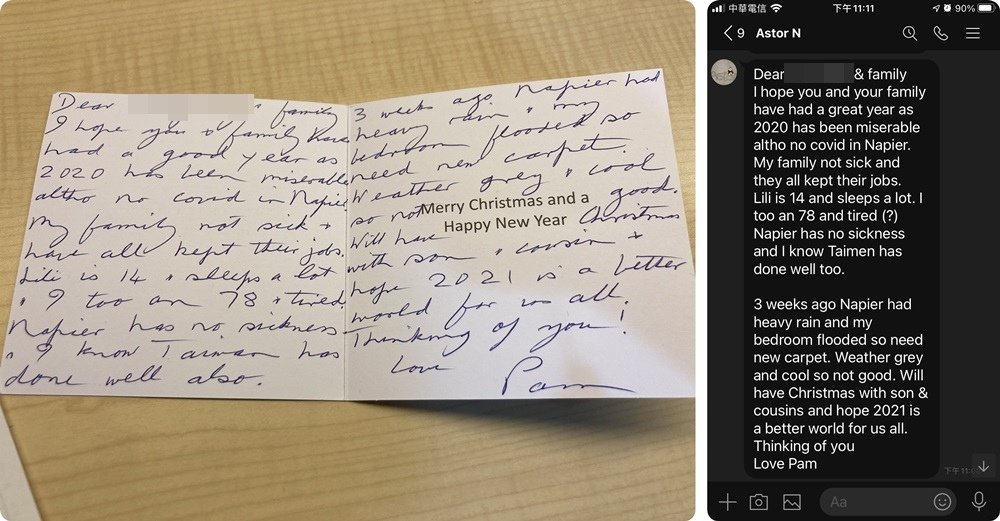 Dear family
I hope you & family have
had a good year as
2020 has been miserable
altho no covid in Napier
My family not sick &
have all kept their jobs.
Lili is 14 & sleeps a lot
& I too am 78 & tired
Napier has no sickness
& I know Taiwan has
done well also.
3 weeks ago Napier had
heavy rain & my
bedroom flooded so
need new carpet.
Weather grey & cool
so not good.
Merry Christmas and a
Happy New Year
Will have Christmas
with son & cousin &
hope 2021 is a better
world for us all.
Thinking of you!
Love Pam
中華電信 下午11:11 90%
9 Astor N
Dear & family
I hope you and your family
have had a great year as
2020 has been miserable
altho no covid in Napier.
My family not sick and
they all kept their jobs.
Lili is 14 and sleeps a lot. I
too an 78 and tired (?)
Napier has no sickness
and I know Taimen has
done well too.
3 weeks ago Napier had
heavy rain and my
bedroom flooded so need
new carpet. Weather grey
and cool so not good. Will
have Christmas with son &
cousins and hope 2021 is
a better world for us all.
Thinking of you
Love Pam
Aa